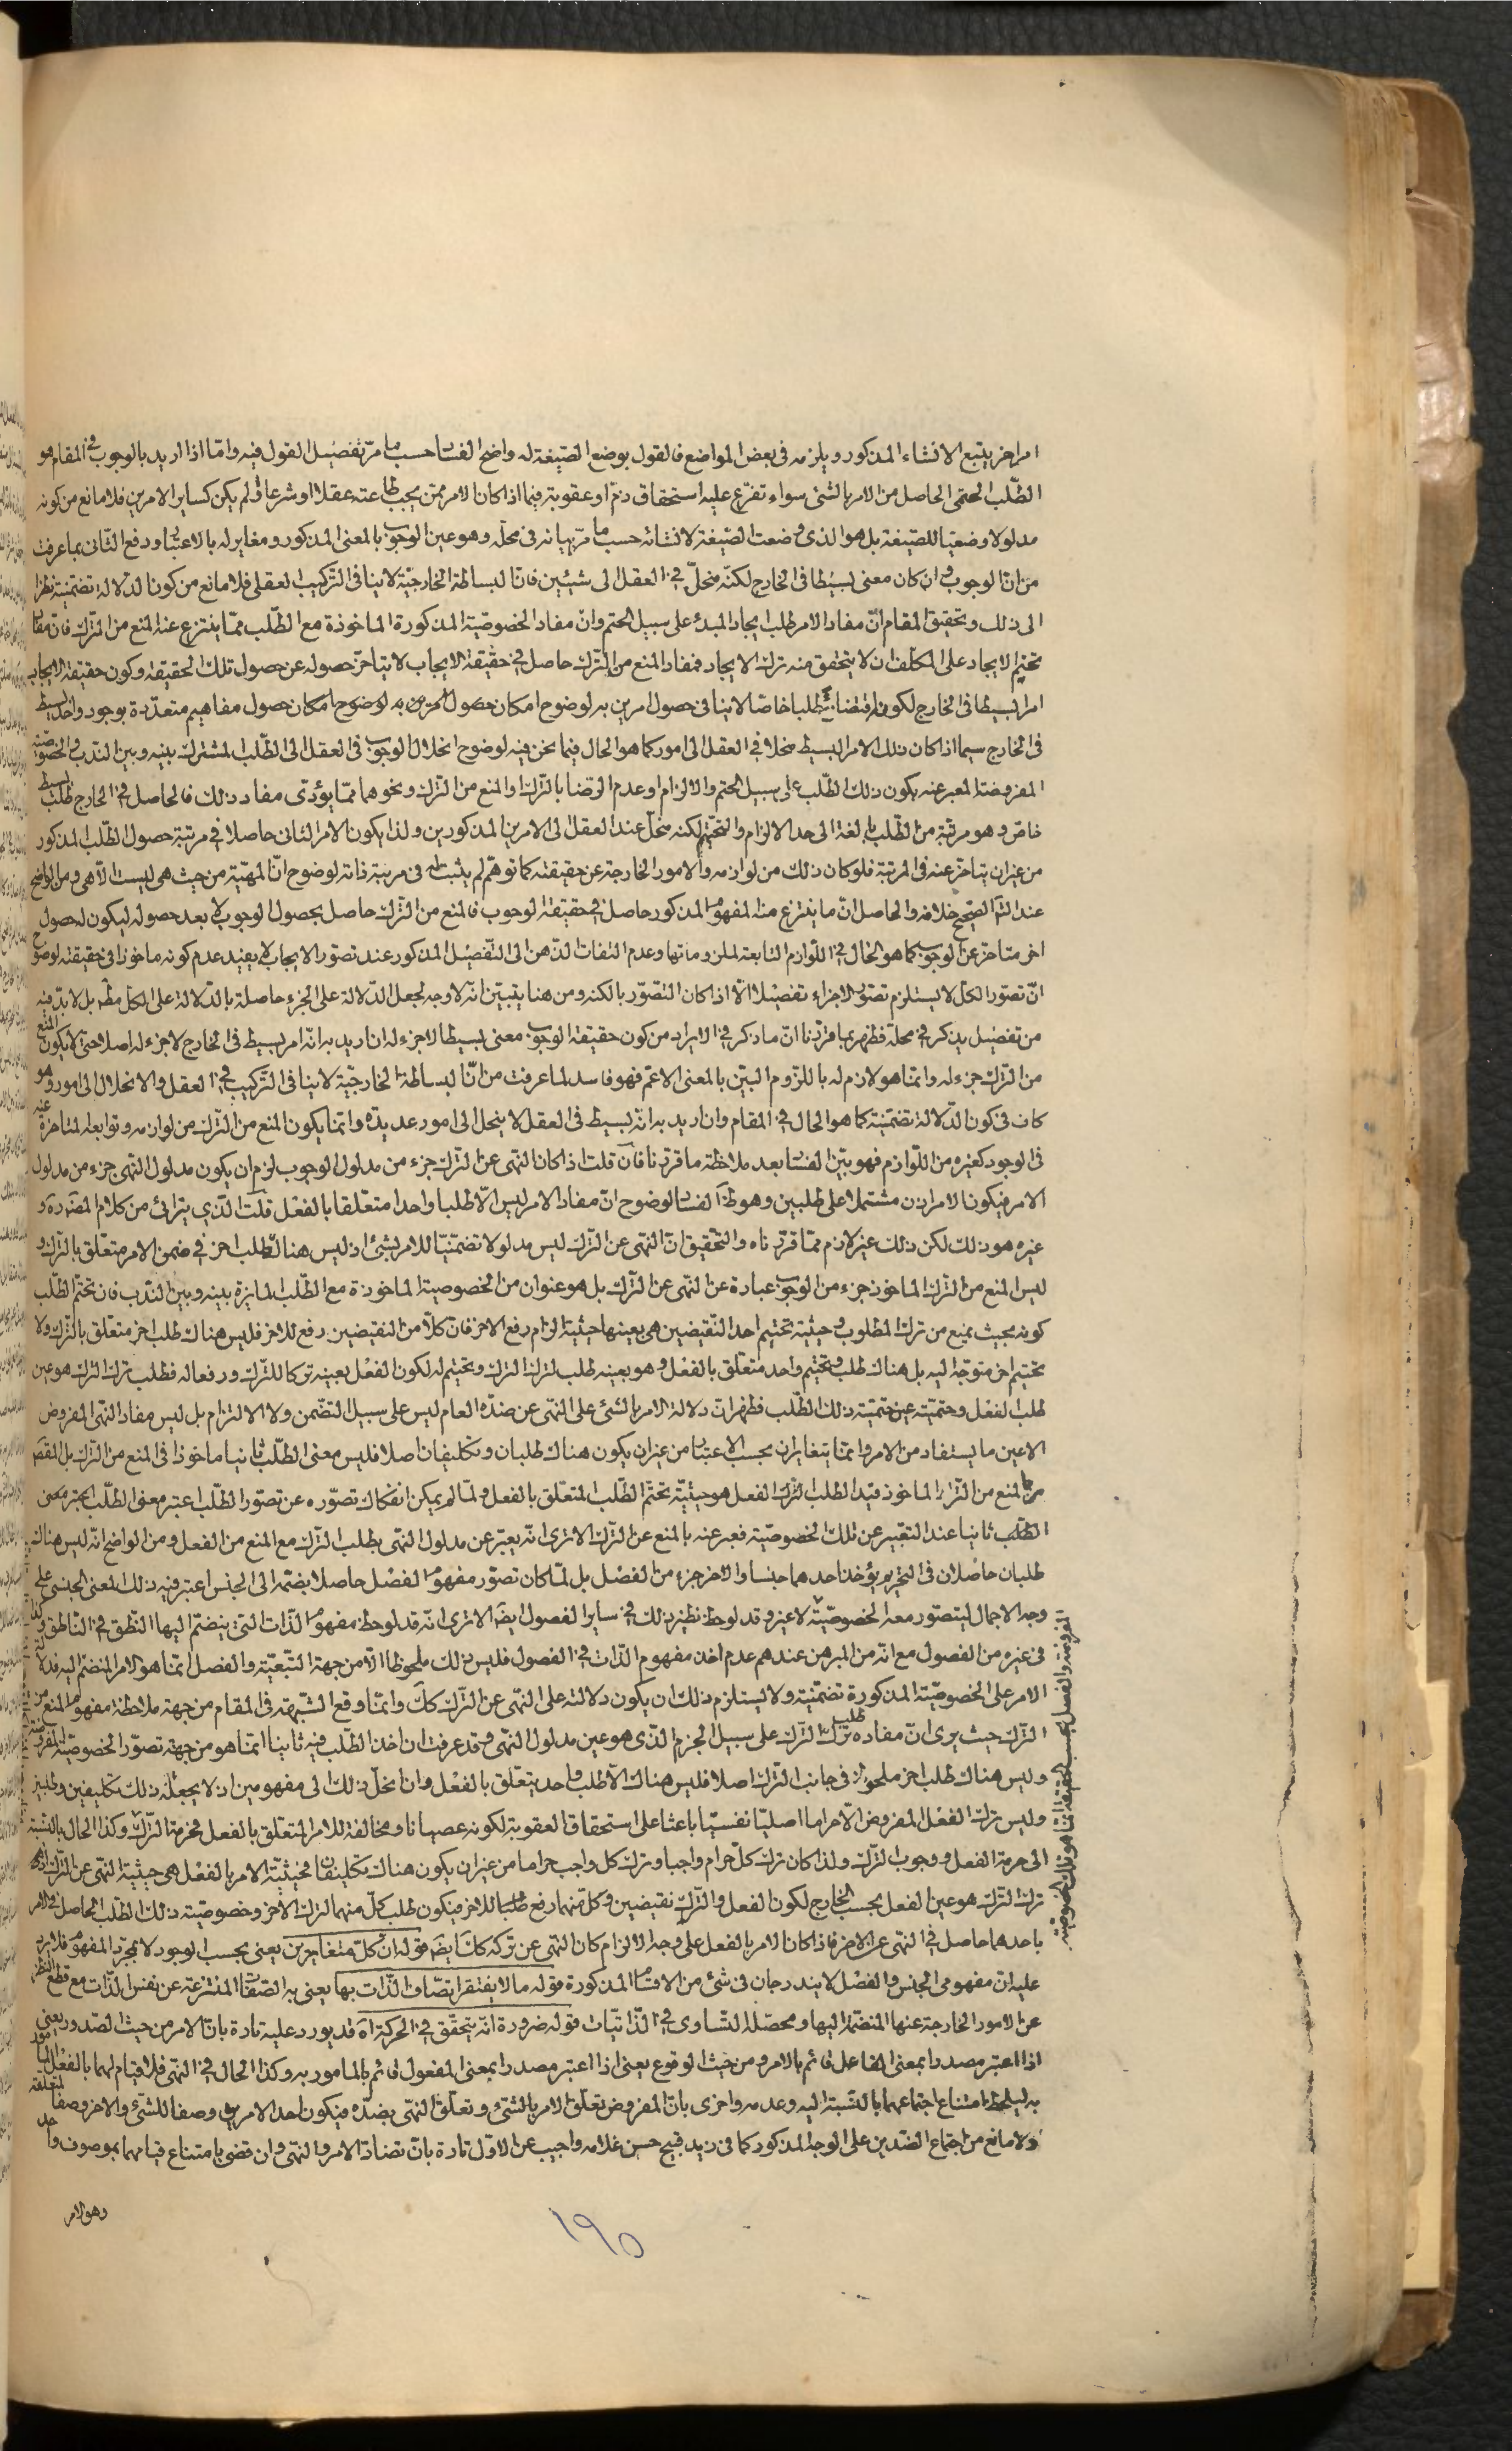 امر اخر يتبع الانشاء المذكور ويلزمه فى بعض المواضع فالقول بوضع الصّيغة له واضح الفساد حسب ما مرّ تفصيل القول فيه وامّا اذا اريد بالوجوب فى المقام هو
الطّلب الحتمى الحاصل من الامر بالشئ سواء تفرّع عليه استحقاق ذمّ او عقوبة فيما اذا كان الامر ممّن يجب طاعته عقلا او شرعا او لم يكن كساير الامرين فلا مانع من كونه
مدلولا وضعيّا للصّيغة بل هو الذى وضعت الصّيغة لانشائه حسب ما مرّ بيانه فى محلّه وهو عين الوجوب بالمعنى المذكور ومغاير له بالاعتبار ودفع الثّانى بما عرفت
من انّ الوجوب وان كان معنى بسيطا فى الخارج لكنّه منحلّ فى العقل الى شيئين فانّ البساطة الخارجيّة لا ينافى التّركيب العقلى فلا مانع من كون الدّلالة تضمّنيّة نظرا
الى ذلك وتحقيق المقام انّ مفاد الامر طلب ايجاد المبدء على سبيل الحتم وانّ مفاد الخصوصيّة المذكورة الماخوذة مع الطّلب ممّا ينتزع عنه المنع من التّرك فانّ مفاد
تحتيم الايجاد على المكلّف ان لا يتحقق منه ترك الايجاد فمفاد المنع من التّرك حاصل فى حقيقة الايجاب لا يتاخّر حصوله عن حصول تلك الحقيقة وكون حقيقة الايجاب
امرا بسيطا فى الخارج لكونه اقتضائيّة وطلبا خاصّا لا ينافى حصول امرين به لوضوح امكان حصول مفاهيم متعدّدة بوجود واحد بسيط
فى الخارج سيما اذا كان ذلك الامر البسيط منحلا فى العقل الى امور كما هو الحال فيما نحن فيه لوضوح انحلال الوجوب فى العقل الى الطّلب المشترك بينه وبين النّدب والخصوصيّة
المفروضة المعبر عنه بكون ذلك الطّلب على سبيل الحتم والالزام او عدم الرّضا بالتّرك او المنع من التّرك ونحوهما ممّا يؤدّى مفاد ذلك فالحاصل فى الخارج طلب بسيط
خاصّ وهو مرتبة من الطّلب بالغة الى حد الالزام والتّحتّم لكنه منحلّ عند العقل الى الامرين المذكورين ولذا يكون الامر الثانى حاصلا فى مرتبة حصول الطّلب المذكور
من غير ان يتاخّر عنه فى المرتبة فلو كان ذلك من لوازمه والامور الخارجة عن حقيقته كما توهّم لم يثبت له فى مرتبة ذاته لوضوح انّ المهيّة من حيث هى ليست الّا هى ومن الواضح
عند التّامّل الصّحيح خلافه والحاصل انّ ما ينتزع منه المفهوم المذكور حاصل فى حقيقة الوجوب فالمنع من التّرك حاصل بحصول الوجوب لا بعد حصوله ليكون له حصول
اخر متاخّر عن الوجوب كما هو الحال فى اللّوازم التّابعة لملزوماتها وعدم التفات الذّهن الى التّفصيل المذكور عند تصوّر الايجاب لا يفيد عدم كونه ماخوذا فى حقيقته لوضوح
انّ تصوّر الكلّ لا يستلزم تصوّر الاجزاء تفصيلا الّا اذا كان التصوّر بالكنه ومن هنا يتبيّن انّه لا وجه لجعل الدّلالة على الجزء حاصلة بالدّلالة على الكلّ مطلقا بل لا بدّ فيه
من تفصيل يذكر فى محلّه فظهر بما قرّرنا انّ ما ذكر فى الايراد من كون حقيقة الوجوب معنى بسيطا لا جزء له ان اريد به انّه امر بسيط فى الخارج لا جزء له اصلا حتّى لا يكون المنع
من التّرك جزء له وانّما هو لازم له باللّزوم البيّن بالمعنى الاعمّ فهو فاسد لما عرفت من انّ البساطة الخارجيّة لا ينافى التّركيب فى العقل والانحلال الى امور وهو
كاف فى كون الدّلالة تضمّنيّة كما هو الحال فى المقام وان اريد به انّه بسيط فى العقل لا ينحل الى امور عديدة وانّما يكون المنع من التّرك من لوازمه وتوابعه المتاخرة عنه
فى الوجود كغيره من اللّوازم فهو بيّن الفساد بعد ملاحظة ما قرّرنا فان قلت اذا كان النّهى عن التّرك جزء من مدلول الوجوب لزم ان يكون مدلول النّهى جزء من مدلول
الامر فيكون الامر اذن مشتملا على طلبين وهو ظاهر الفساد لوضوح انّ مفاد الامر ليس الّا طلبا واحدا متعلّقا بالفعل قلت الّذى يترائى من كلام المصنّف ره و
غيره هو ذلك لكن ذلك غير لازم ممّا قرّرناه والتّحقيق انّ النّهى عن التّرك ليس مدلولا تضمّنيّا للامر بشئ اذ ليس هناك طلب اخر فى ضمن الامر متعلّق بالتّرك و
ليس المنع من التّرك الماخوذ جزء من الوجوب عبارة عن النّهى عن التّرك بل هو عنوان من الخصوصيّة الماخوذة مع الطّلب المايزة بينه وبين النّدب فان تحتّم الطّلب
كونه بحيث يمنع من ترك المطلوب وحيثيّة تحتيم احد النّقيضين هى بعينها حيثيّة الزام رفع الاخر فانّ كلّا من النّقيضين رفع للاخر فليس هناك طلب اخر متعلّق بالتّرك ولا
تحتيم اخر متوجّه اليه بل هناك طلب وتحتيم واحد متعلّق بالفعل وهو بعينه طلب لترك التّرك وتحتيم له لكون الفعل بعينه تركا للتّرك ورفعا له فطلب ترك التّرك هو عين
طلب الفعل وحتميّته عين حتميّة ذلك الطّلب فظهر انّ دلالة الامر بالشئ على النّهى عن ضدّه العام ليس على سبيل التضّمن ولا الالتزام بل ليس مفاد النّهى المفروض
الا عين ما يستفاد من الامر وانّما يتغايران بحسب الاعتبار من غير ان يكون هناك طلبان وتكليفان اصلا فليس معنى الطّلب ثانيا ماخوذا فى المنع من التّرك بل القصد
من المنع من التّرك الماخوذ قيدا لطلب الفعل هو حيثيّة تحتّم الطّلب المتعلّق بالفعل ولمّا لم يمكن انفكاك تصوّره عن تصوّر الطّلب اعتبر معنى
الطّلب ثانيا عند التّعبير عن تلك الخصوصيّة فعبر عنه بالمنع عن التّرك الا ترى انّه يعبّر عن مدلول النّهى بطلب التّرك مع المنع من الفعل ومن الواضح انّه ليس هناك
طلبان حاصلان فى التّحريم يؤخذ احدهما جنسا والاخر جزء من الفصل بل لمّا كان تصوّر مفهوم الفصل حاصلا بضمّه الى الجنس اعتبر فيه ذلك المعنى الجنسى على
وجه الاجمال ليتصوّر معه الخصوصيّة لا غير وقد لوحظ نظير ذلك فى ساير الفصول ايضا الا ترى انّه قد لوحظ مفهوم الذّات التى ينضمّ اليها النّطق فى النّاطق وكذا
فى غيره من الفصول مع انّه من المبرهن عندهم عدم اخذ مفهوم الذّات فى الفصول فليس ذلك ملحوظا الّا من جهة التّبعيّة والفصل انّما هو الامر المنضمّ اليه فدلالة
الامر على الخصوصيّة المذكورة تضمّنيّة ولا يستلزم ذلك ان يكون دلالته على النّهى عن التّرك كك وانّما وقع الشّبهة فى المقام من جهة ملاحظة مفهوم المنع من
التّرك حيث يرى انّ مفاده طلب ترك التّرك على سبيل الجزم الّذى هو عين مدلول النّهى وقد عرفت ان اخذ الطّلب فيه ثانيا انّما هو من جهة تصوّر الخصوصيّة المفروضة
وليس هناك طلب اخر ملحوظ فى جانب التّرك اصلا فليس هناك الّا طلب واحد يتعلّق بالفعل وان انحلّ ذلك الى مفهومين اذ لا يجعله ذلك تكليفين وطلبين
وليس ترك الفعل المفروض الّا حراما اصليّا نفسيّا باعثا على استحقاق العقوبة لكونه عصيانا ومخالفة للامر المتعلّق بالفعل فحرمة التّرك وكذا الحال بالنّسبة
الى حرمة الفعل ووجوب التّرك ولذا كان ترك كلّ حرام واجبا وترك كل واجب حراما من غير ان يكون هناك تكليفان فحيثيّة الامر بالفعل هى حيثيّة النّهى عن التّرك
ترك التّرك هو عين الفعل بحسب الخارج لكون الفعل والتّرك نقيضين وكلّ منهما رفع للاخر فيكون طلب كلّ منهما لترك الاخر وخصوصيّة ذلك الطّلب الحاصل فى الامر
باحدهما حاصل فى النّهى عن الاخر فاذا كان الامر بالفعل على وجه الالزام كان النّهى عن تركه كك ايضا قوله ان كلّ متغايرين يعنى بحسب الوجود لا بمجرّد المفهوم فلا يرد
عليه انّ مفهومى الجنس والفصل لا يندرجان فى شئ من الاقسام المذكورة قوله ما لا يفتقر اتّصاف الذّات بها يعنى به الصّفات المنتزعة عن نفس الذّات مع قطع النّظر
عن الامور الخارجة عنها المنضمّة اليها ومحصّله التّساوى فى الذّاتيّات قوله ضرورة انّه يتحقّق فى الحركة اه قد يورد عليه تارة بانّ الامر من حيث الصّدور يعنى
اذا اعتبر مصدرا بمعنى الفاعل قائم بالامر ومن حيث الوقوع يعنى اذا اعتبر مصدرا بمعنى المفعول قائم بالمامور به وكذا الحال فى النّهى فلا قيام لهما بالفعل المامور
به ليلحظ امتناع اجتماعهما بالنّسبة اليه وعدمه واخرى بانّ المفروض تعلّق الامر بالشئ وتعلّق النّهى بضدّه فيكون احد الامرين وصفا للشئ والاخر وصفا لمتعلقه
ولا مانع من اجتماع الضّدين على الوجه المذكور كما فى زيد قبيح حسن غلامه واجيب عن الاوّل تارة بانّ تضادّ الامر والنّهى وان قضى بامتناع قيامهما بموصوف واحد
وهو الامر
١٩٥